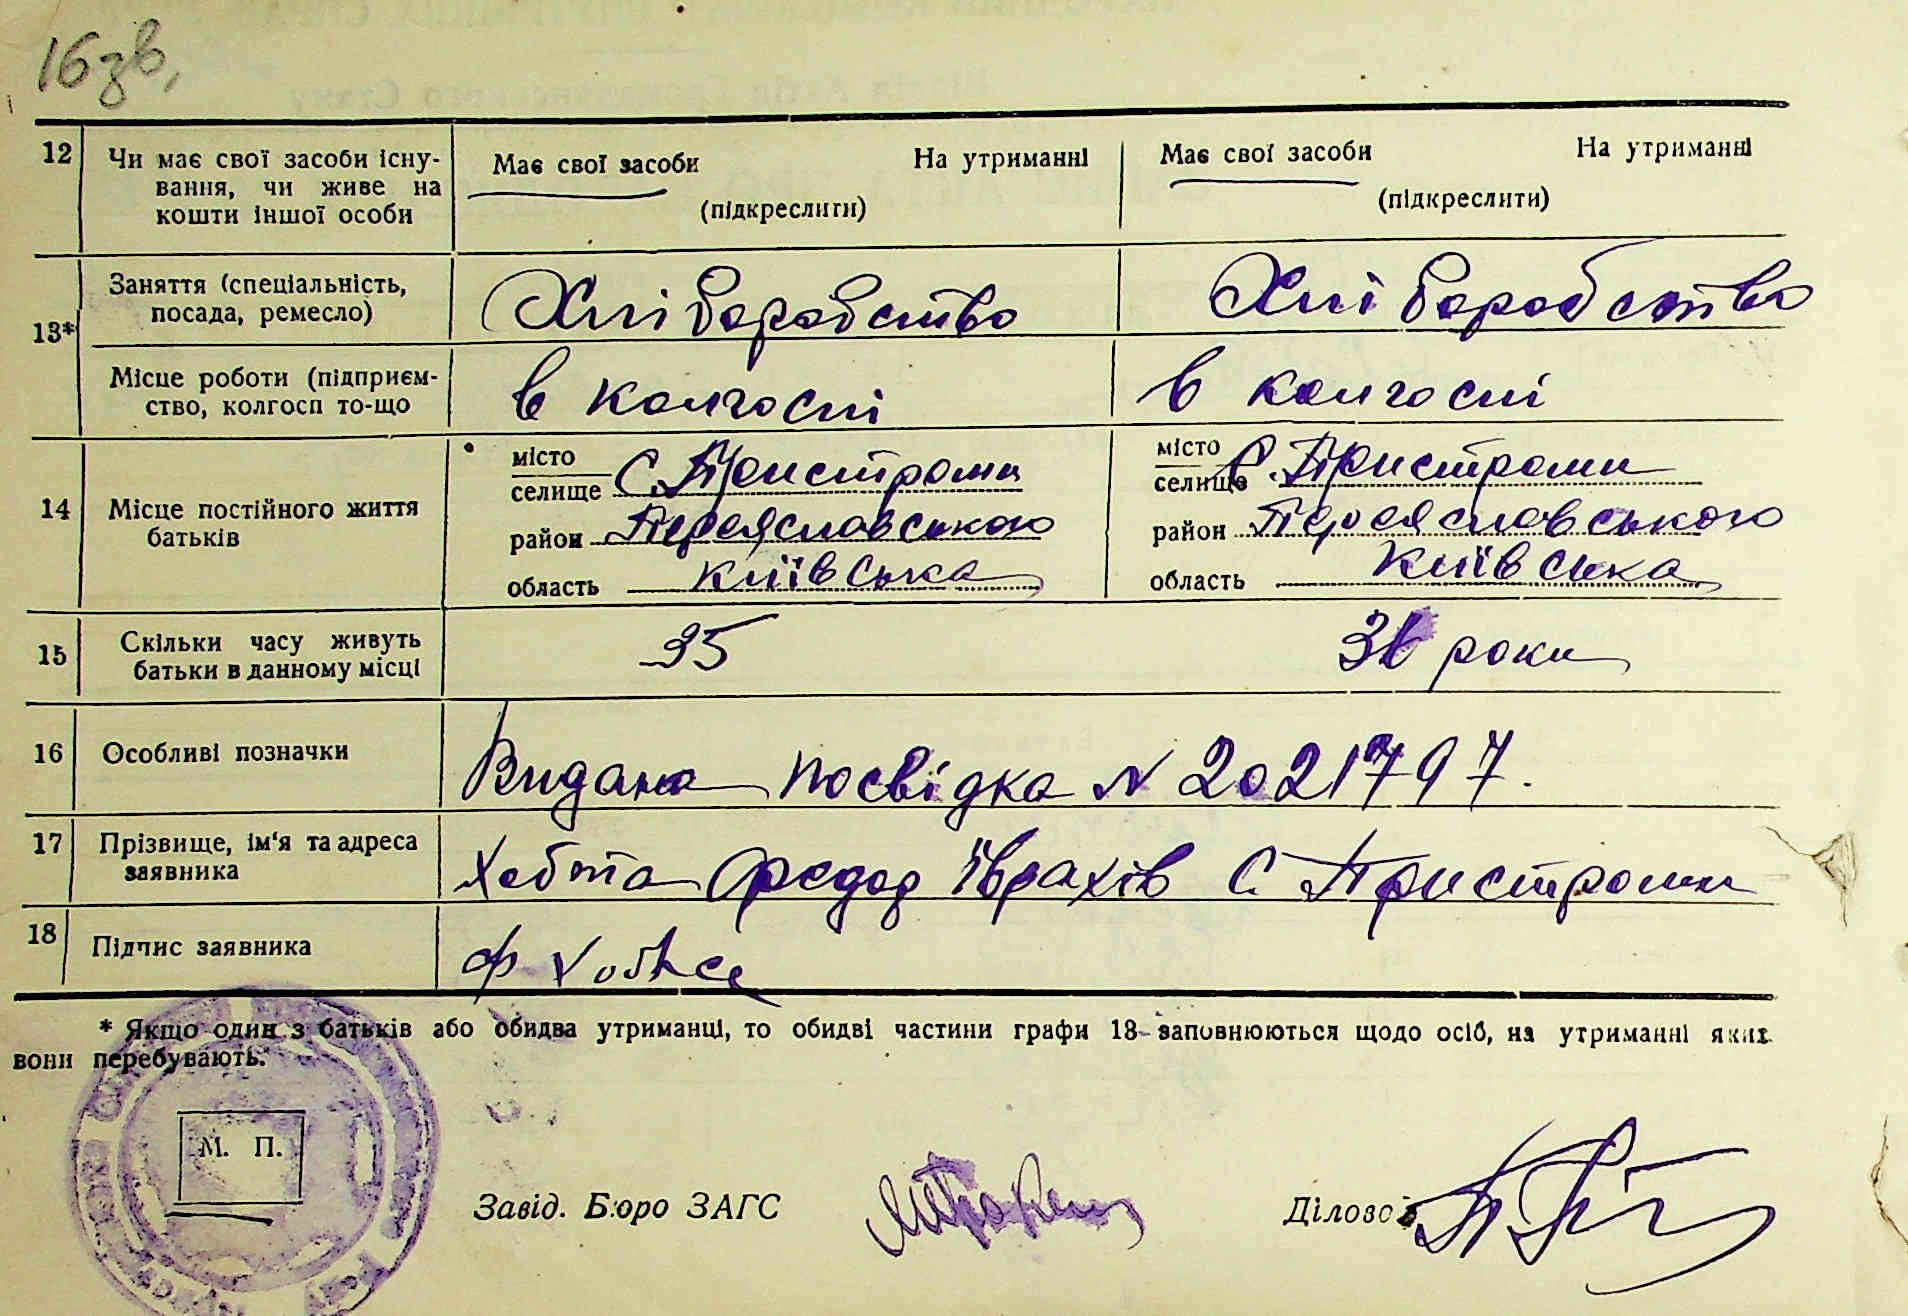 16зв,
12 Чи має свої засоби існу- Має свої засоби На утриманні Має свої засоби На утриманні
вання, чи живе на
кошти іншої особи (підкреслити) (підкреслити)
13* Заняття (спеціальність, Хліборобство Хліборобство
посада, ремесло)
Місце роботи (підприєм- в колгоспі в колгоспі
ство, колгосп то-що
14 Місце постійного життя місто місто
батьків селище С. Пристроми селище С. Пристроми
район Переяславського район Переяславського
область Київська область Київська
15 Скільки часу живуть 35 роки
батьки в данному місці
16 Особливі позначки Видана посвідка N 2021797.
17 Прізвище, ім'я та адреса Хобта Федор С Пристроми
заявника
18 Підпис заявника ф Хобта
* Якщо один з батьків або обидва утриманці, то обидві частини графи 13 заповнюються щодо осіб, на утриманні яких
вони перебувають.
М. П.
Завід. Бюро ЗАГС Діловод